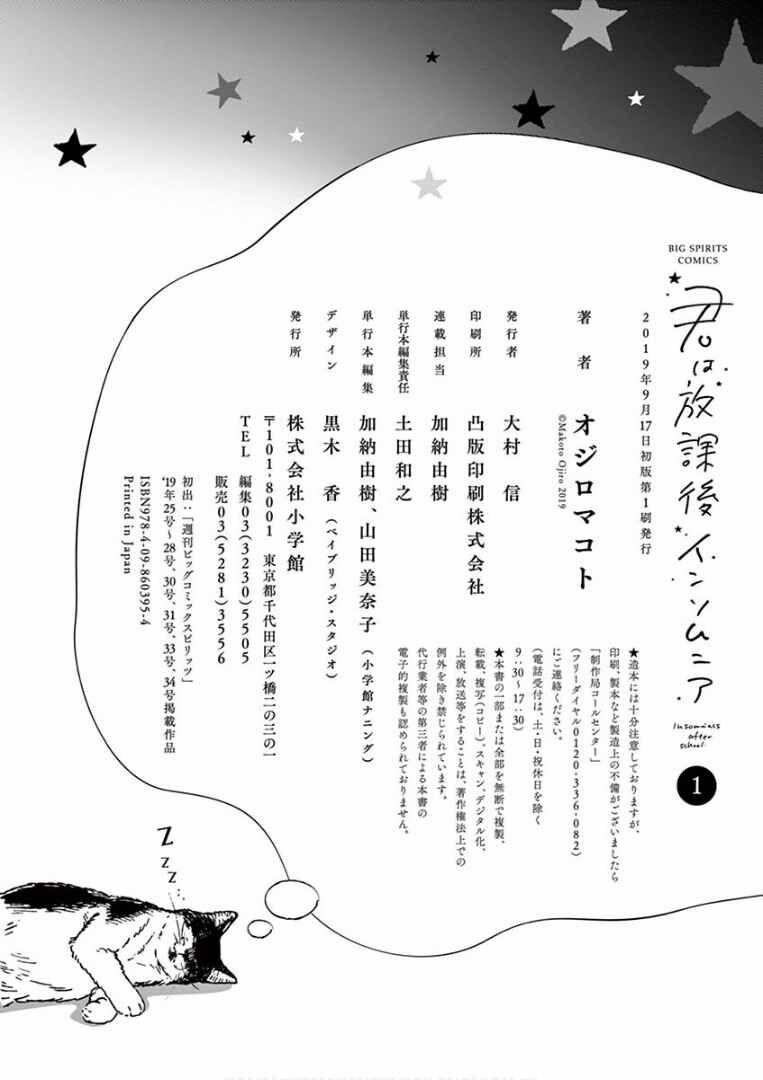 BIG SPIRITS
COMICS
君は放課後インソムニア
Insomniacs
after
school
1
2019年9月17日初版第1刷発行
著者 オジロマコト
©Makoto Ojiro 2019
発行者 大村 信
印刷所 凸版印刷株式会社
連載担当 加納由樹
単行本編集責任 土田和之
単行本編集 加納由樹、山田美奈子(小学館ナニング)
デザイン 黒木 香(ベイブリッジ・スタジオ)
発行所 株式会社小学館
〒101-8001 東京都千代田区一ツ橋二の三の一
TEL 編集03(3230)5505
販売03(5281)3556
初出:「週刊ビッグコミックスピリッツ」
'19年25号〜28号、30号、31号、33号、34号掲載作品
ISBN978-4-09-860395-4
Printed in Japan
★造本には十分注意しておりますが、
印刷、製本など製造上の不備がございましたら
「制作局コールセンター」
(フリーダイヤル0120-336-082)
にご連絡ください。
(電話受付は、土・日・祝休日を除く
9:30〜17:30)
★本書の一部または全部を無断で複製、
転載、複写(コピー)、スキャン、デジタル化、
上演、放送等をすることは、著作権法上での
例外を除き禁じられています。
代行業者等の第三者による本書の
電子的複製も認められておりません。
Z
Z
Z...